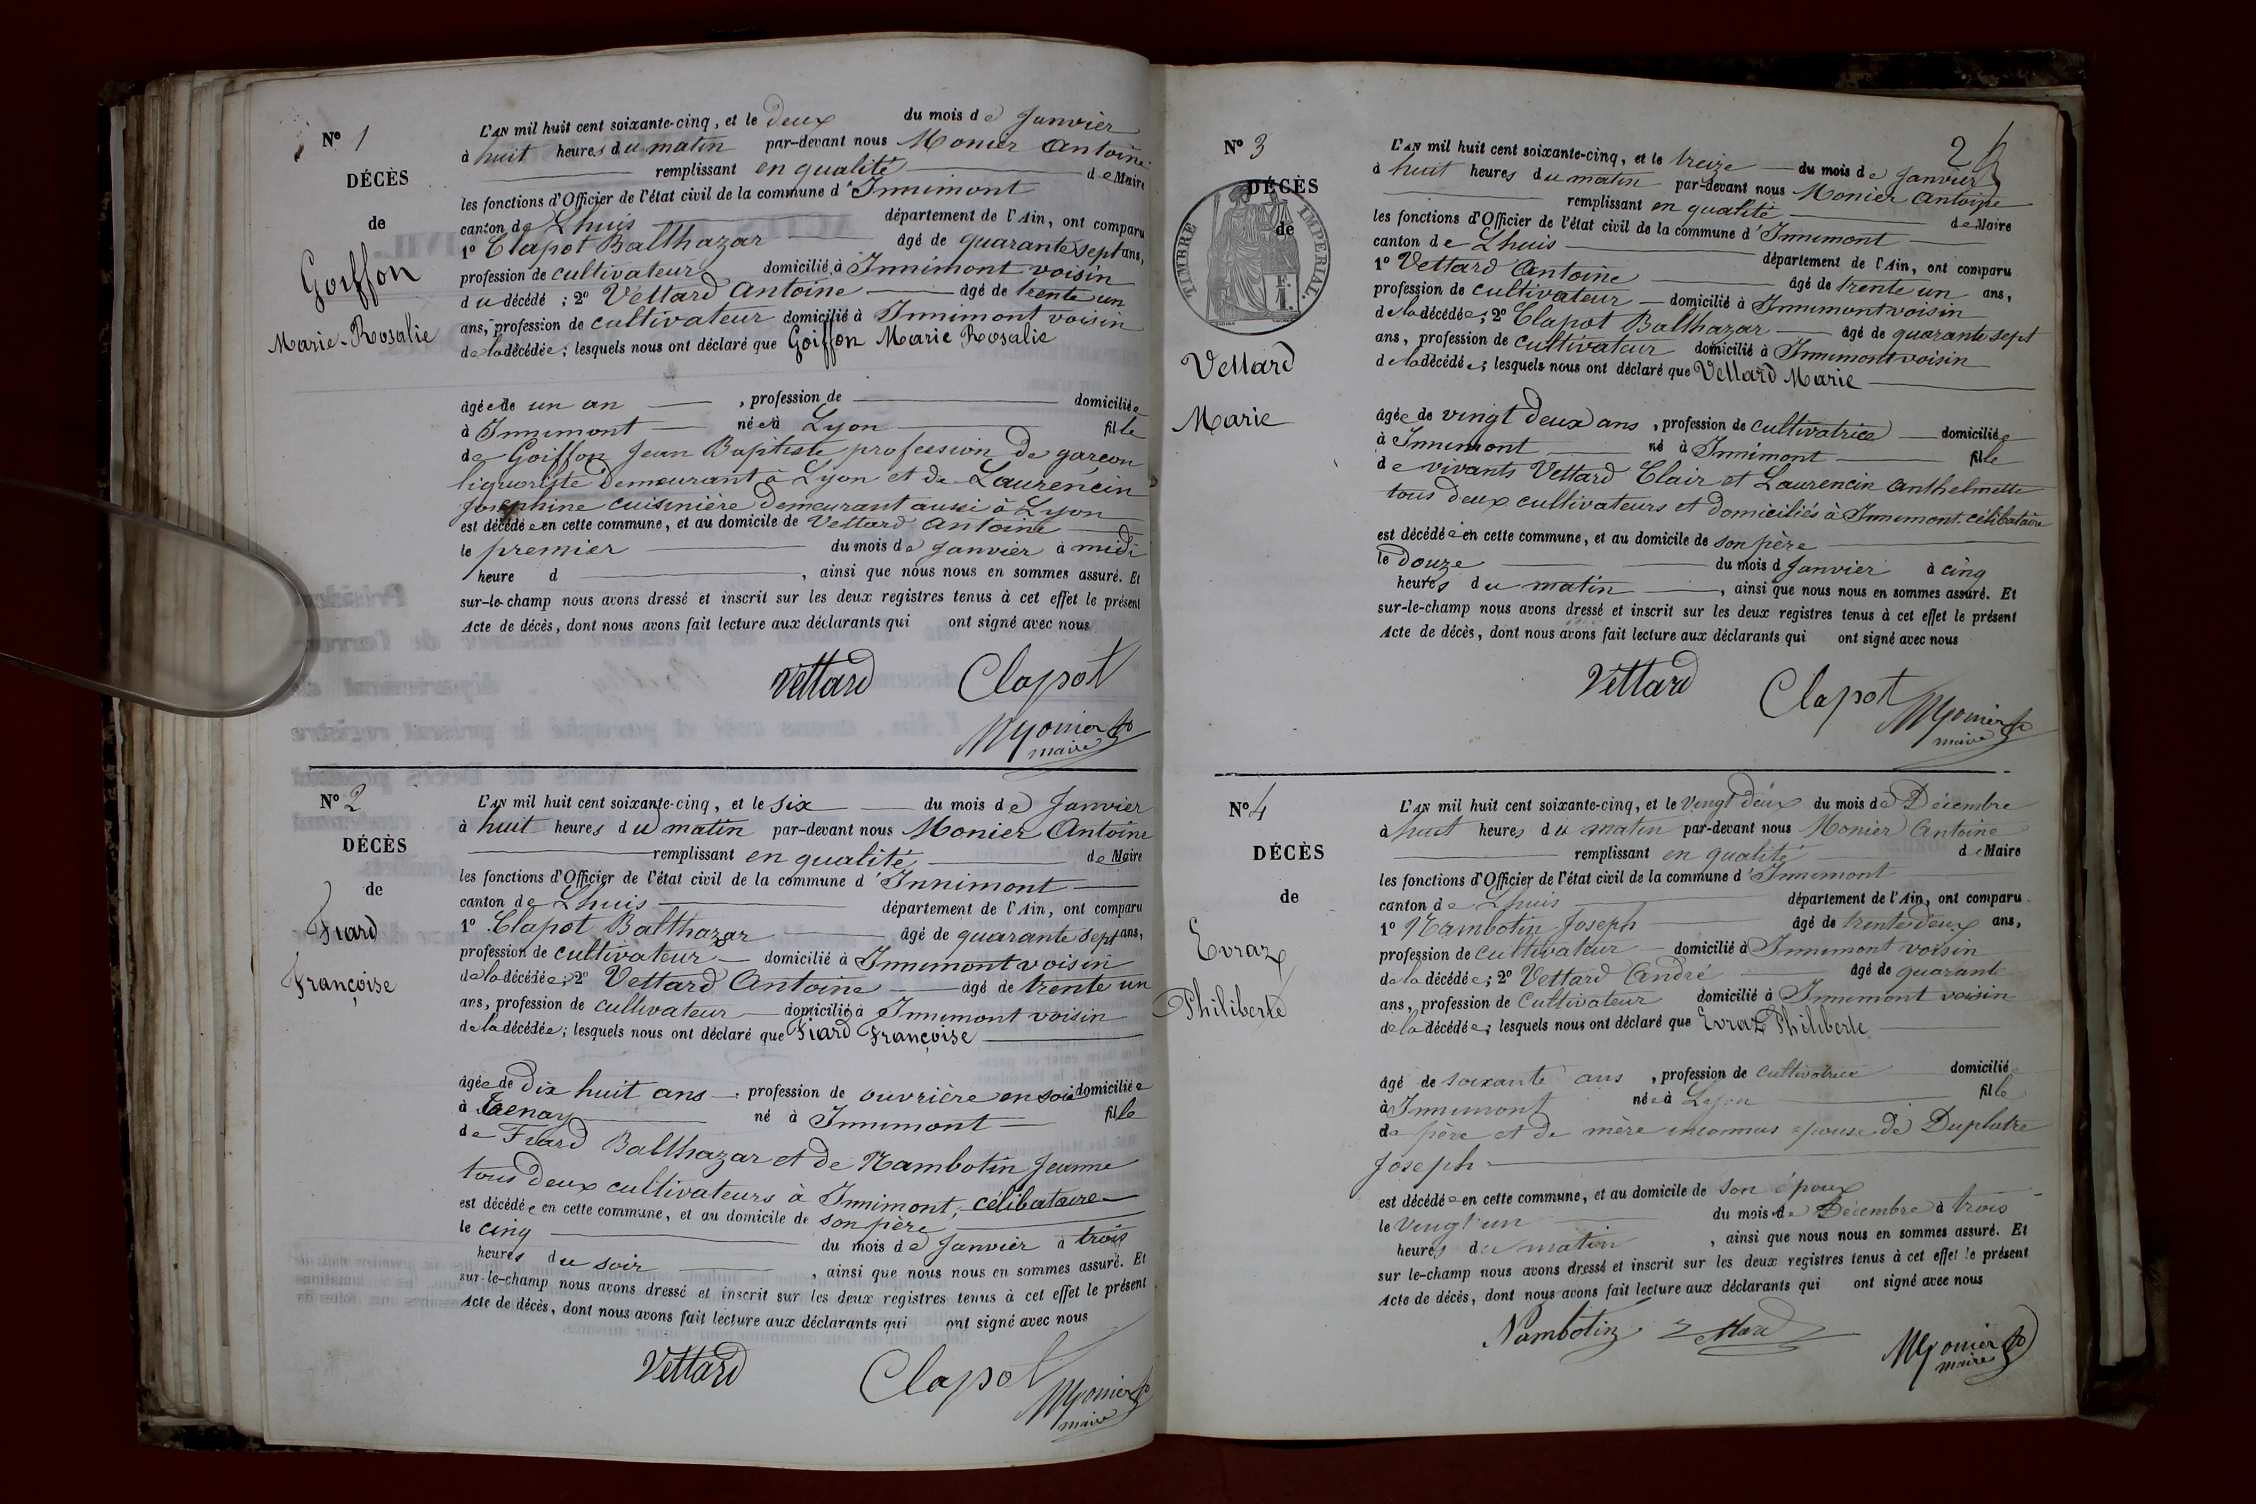 N° 1
DÉCÈS
de
Goiffon
Marie-Rosalie
L'AN mil huit cent soixante-cinq, et le deux du mois de Janvier
à huit heures du matin par-devant nous Monier Antoine
remplissant en qualité de Maire
les fonctions d'Officier de l'état civil de la commune d'Innimont
canton de Lhuis département de l'Ain, ont comparu
1° Clapot Balthazar âgé de quarante sept ans,
profession de cultivateur domicilié à Innimont voisin
du décédé ; 2° Vettard Antoine âgé de trente un
ans, profession de cultivateur domicilié à Innimont voisin
de la décédée ; lesquels nous ont déclaré que Goiffon Marie Rosalie
âgée de un an , profession de domiciliée
à Innimont née à Lyon fille
de Goiffon Jean Baptiste profession de garçon
liquoriste demeurant à Lyon et de Laurencin
Joséphine cuisinière demeurant aussi à Lyon
est décédée en cette commune, et au domicile de Vettard Antoine
le premier du mois de Janvier à midi
heure d , ainsi que nous nous en sommes assuré. Et
sur-le-champ nous avons dressé et inscrit sur les deux registres tenus à cet effet le présent
Acte de décès, dont nous avons fait lecture aux déclarants qui ont signé avec nous
Vettard Clapot
Monier
maire
N° 2
DÉCÈS
de
Fiard
Françoise
L'AN mil huit cent soixante-cinq, et le six du mois de Janvier
à huit heures du matin par-devant nous Monier Antoine
remplissant en qualité de Maire
les fonctions d'Officier de l'état civil de la commune d'Innimont
canton de Lhuis département de l'Ain, ont comparu
1° Clapot Balthazar âgé de quarante sept ans,
profession de cultivateur domicilié à Innimont voisin
de la décédée ; 2° Vettard Antoine âgé de trente un
ans, profession de cultivateur domicilié à Innimont voisin
de la décédée ; lesquels nous ont déclaré que Fiard Françoise
âgée de dix huit ans , profession de ouvrière en soie domiciliée
à Tenay né à Innimont fille
de Fiard Balthazar et de Nambotin Jeanne
tous deux cultivateurs à Innimont, célibataire
est décédée en cette commune, et au domicile de son père
le cinq du mois de Janvier à trois
heures du soir , ainsi que nous nous en sommes assuré. Et
sur-le-champ nous avons dressé et inscrit sur les deux registres tenus à cet effet le présent
Acte de décès, dont nous avons fait lecture aux déclarants qui ont signé avec nous
Vettard Clapot
Monier
maire
2
N° 3
DÉCÈS
de
TIMBRE IMPÉRIAL.
1 F.
Vettard
Marie
L'AN mil huit cent soixante-cinq, et le treize du mois de Janvier
à huit heures du matin par-devant nous Monier Antoine
remplissant en qualité de Maire
les fonctions d'Officier de l'état civil de la commune d'Innimont
canton de Lhuis département de l'Ain, ont comparu
1° Vettard Antoine âgé de trente un ans,
profession de cultivateur domicilié à Innimont voisin
de la décédée ; 2° Clapot Balthazar âgé de quarante sept
ans, profession de cultivateur domicilié à Innimont voisin
de la décédée ; lesquels nous ont déclaré que Vettard Marie
âgée de vingt deux ans , profession de cultivatrice domiciliée
à Innimont né à Innimont fille
de vivants Vettard Clair et Laurencin Anthelmette
tous deux cultivateurs et domiciliés à Innimont. célibataire
est décédée en cette commune, et au domicile de son père
le douze du mois d Janvier à cinq
heures du matin , ainsi que nous nous en sommes assuré. Et
sur-le-champ nous avons dressé et inscrit sur les deux registres tenus à cet effet le présent
Acte de décès, dont nous avons fait lecture aux déclarants qui ont signé avec nous
Vettard Clapot
Monier
maire
N° 4
DÉCÈS
de
Evraz
Philiberte
L'AN mil huit cent soixante-cinq, et le vingt deux du mois de Décembre
à huit heures du matin par-devant nous Monier Antoine
remplissant en qualité de Maire
les fonctions d'Officier de l'état civil de la commune d'Innimont
canton de Lhuis département de l'Ain, ont comparu
1° Nambotin Joseph âgé de trente deux ans,
profession de cultivateur domicilié à Innimont voisin
de la décédée ; 2° Vettard André âgé de quarante
ans, profession de cultivateur domicilié à Innimont voisin
de la décédée ; lesquels nous ont déclaré que Evraz Philiberte
âgé de soixante ans , profession de cultivatrice domiciliée
à Innimont née à Lyon fille
de père et de mère inconnus épouse de Duplatre
Joseph
est décédée en cette commune, et au domicile de son époux
le vingt un du mois de Décembre à trois
heures du matin , ainsi que nous nous en sommes assuré. Et
sur le-champ nous avons dressé et inscrit sur les deux registres tenus à cet effet le présent
Acte de décès, dont nous avons fait lecture aux déclarants qui ont signé avec nous
Nambotin
Monier
maire